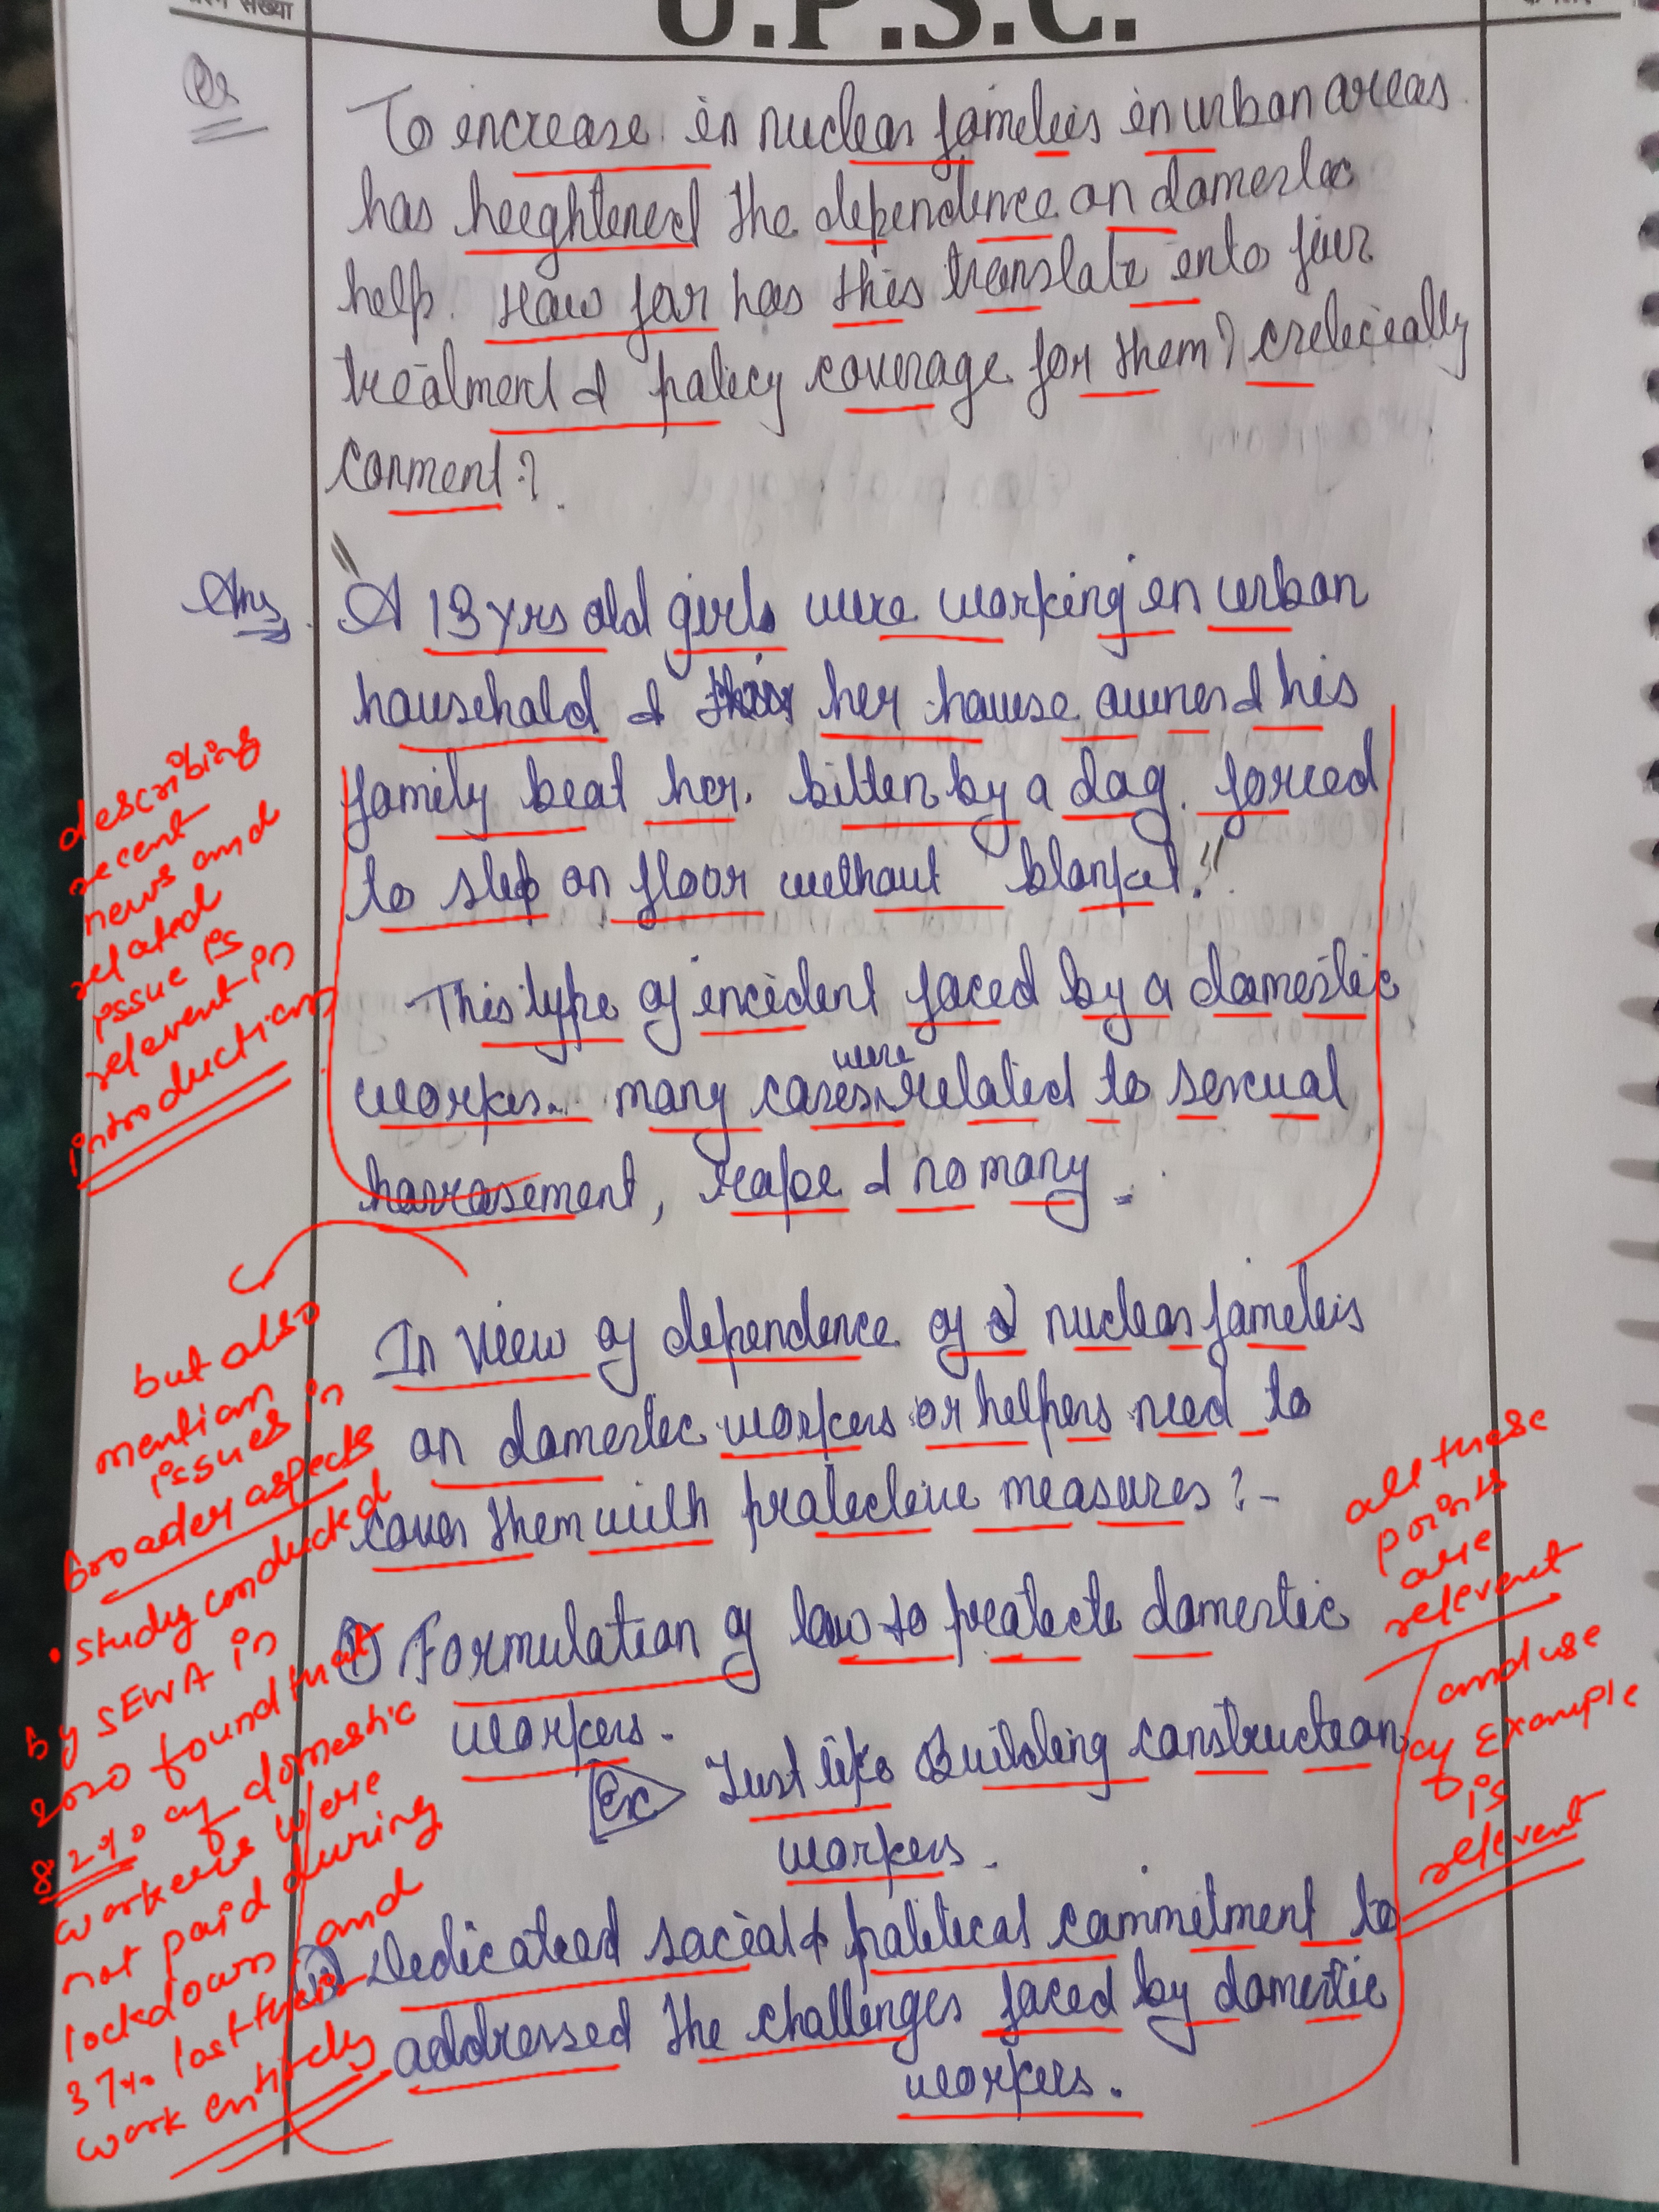 संख्या
U.P.S.C.
Qs
To increase in nuclear families in urban areas
has heightened the dependence on domestic
help. How far has this translate into fair
treatment & policy coverage for them? critically
comment?
Ans
"A 13 yrs old girls were working in urban
household & her house owner & his
family beat her. bitten by a dog. forced
to slep on floor without blanket."
This type of incident faced by a domestic
workes. many cases were related to sexual
harrasement, reape & so many.
In view of dependence of nuclear families
on domestic workers or helpers need to
cover them with protective measures? -
① Formulation of law to preatecte domestic
workers.
Ex Just like Building construction
workers.
② Dedicated social & political commitment to
addressed the challenges faced by domestic
workers.
describing
recent
news and
related
issue is
relevent in
introduction
but also
mention
issues in
broader aspects
• study conducted
by SEWA in
2020 found that
82% of domestic
workers were
not paid during
lockdown and
37% lost their
work entirely
all these
points
are
relevent
and use
of Example
is
relevent